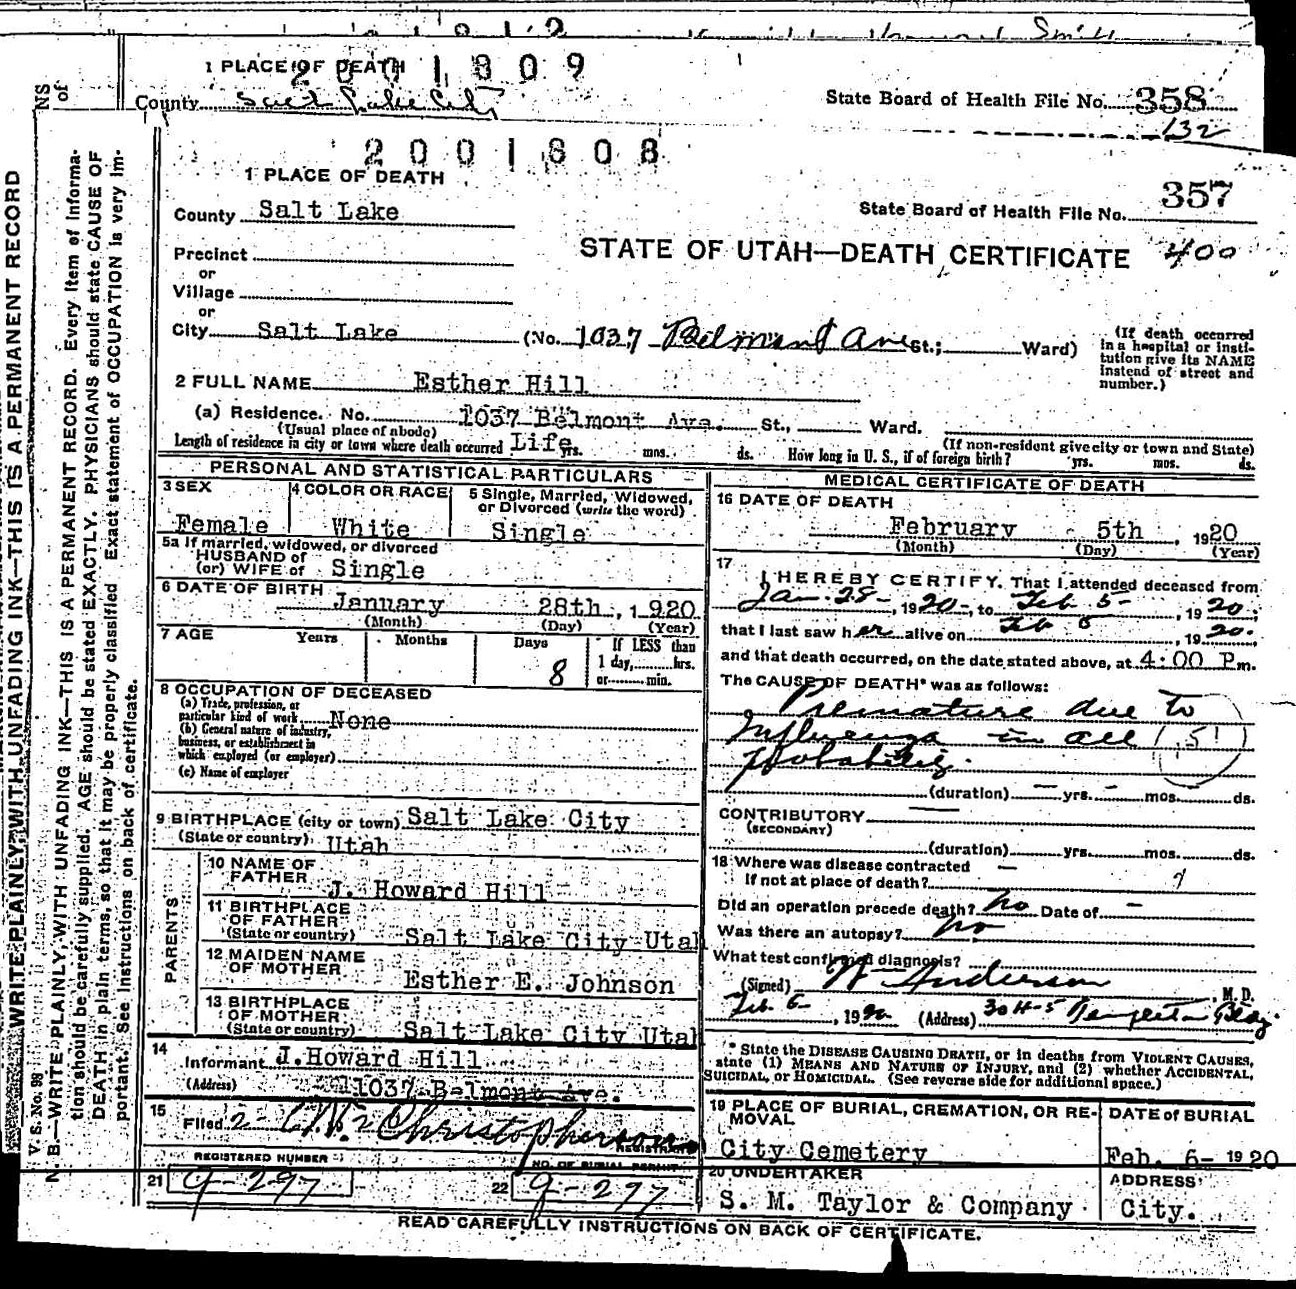 1 PLACE OF DEATH
2001809
County Salt Lake City
State Board of Health File No. 358
132
2001808
1 PLACE OF DEATH
357
County Salt Lake
State Board of Health File No.
STATE OF UTAH—DEATH CERTIFICATE 400
Precinct
or
Village
or
City Salt Lake (No. 1037 Belmont Ave St.; Ward)
(If death occurred in a hospital or institution give its NAME instead of street and number.)
2 FULL NAME Esther Hill
(a) Residence. No. 1037 Belmont Ave. St., Ward.
(Usual place of abode) (If non-resident give city or town and State)
Length of residence in city or town where death occurred Life yrs. mos. ds. How long in U. S., if of foreign birth? yrs. mos. ds.
PERSONAL AND STATISTICAL PARTICULARS
3 SEX
Female
4 COLOR OR RACE
White
5 Single, Married, Widowed, or Divorced (write the word)
Single
5a If married, widowed, or divorced
HUSBAND of
(or) WIFE of Single
6 DATE OF BIRTH
January 28th, 1920
(Month) (Day) (Year)
7 AGE Years Months Days If LESS than
8 1 day, hrs.
or min.
8 OCCUPATION OF DECEASED
(a) Trade, profession, or
particular kind of work None
(b) General nature of industry,
business, or establishment in
which employed (or employer)
(c) Name of employer
9 BIRTHPLACE (city or town) Salt Lake City
(State or country) Utah
PARENTS
10 NAME OF FATHER
J. Howard Hill
11 BIRTHPLACE OF FATHER
(State or country) Salt Lake City Utah
12 MAIDEN NAME OF MOTHER
Esther E. Johnson
13 BIRTHPLACE OF MOTHER
(State or country) Salt Lake City Utah
14
Informant J.Howard Hill
(Address) 1037 Belmont Ave.
15
Filed 2- Christopherson
REGISTRAR
REGISTERED NUMBER
21 9-297
NO. OF BURIAL PERMIT
22 9-297
MEDICAL CERTIFICATE OF DEATH
16 DATE OF DEATH
February 5th, 1920
(Month) (Day) (Year)
17
I HEREBY CERTIFY. That I attended deceased from
Jan. 28-, 1920-, to Feb 5-, 1920;
that I last saw her alive on Feb 5, 1920.
and that death occurred, on the date stated above, at 4:00 P m.
The CAUSE OF DEATH* was as follows:
Premature due to
Influenza in all 151
probability.
(duration) yrs. mos. ds.
CONTRIBUTORY
(SECONDARY)
(duration) yrs. mos. ds.
18 Where was disease contracted
If not at place of death?
Did an operation precede death? no Date of -
Was there an autopsy? no
What test confirmed diagnosis?
(Signed) W Anderson, M. D.
Feb 6-, 1920 (Address) 304-5 Bldg
* State the DISEASE CAUSING DEATH, or in deaths from VIOLENT CAUSES,
state (1) MEANS AND NATURE OF INJURY, and (2) whether ACCIDENTAL,
SUICIDAL, or HOMICIDAL. (See reverse side for additional space.)
19 PLACE OF BURIAL, CREMATION, OR REMOVAL
City Cemetery
DATE of BURIAL
Feb. 6- 1920
20 UNDERTAKER
S. M. Taylor & Company
ADDRESS
City.
READ CAREFULLY INSTRUCTIONS ON BACK OF CERTIFICATE.
WRITE PLAINLY, WITH UNFADING INK—THIS IS A PERMANENT RECORD
V. S. No. 98
N. B.—WRITE PLAINLY, WITH UNFADING INK—THIS IS A PERMANENT RECORD. Every item of information should be carefully supplied. AGE should be stated EXACTLY. PHYSICIANS should state CAUSE OF DEATH in plain terms, so that it may be properly classified. Exact statement of OCCUPATION is very important. See instructions on back of certificate.